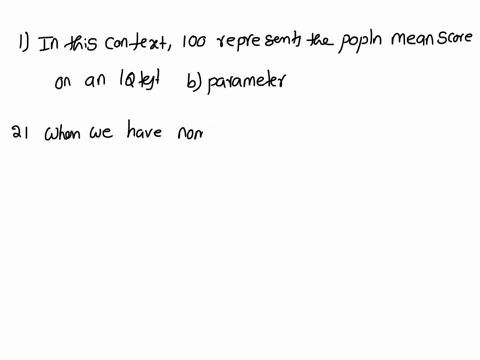 1) In this context, 100 represents the popln mean score
on an IQ test b) parameter
2) when we have nor